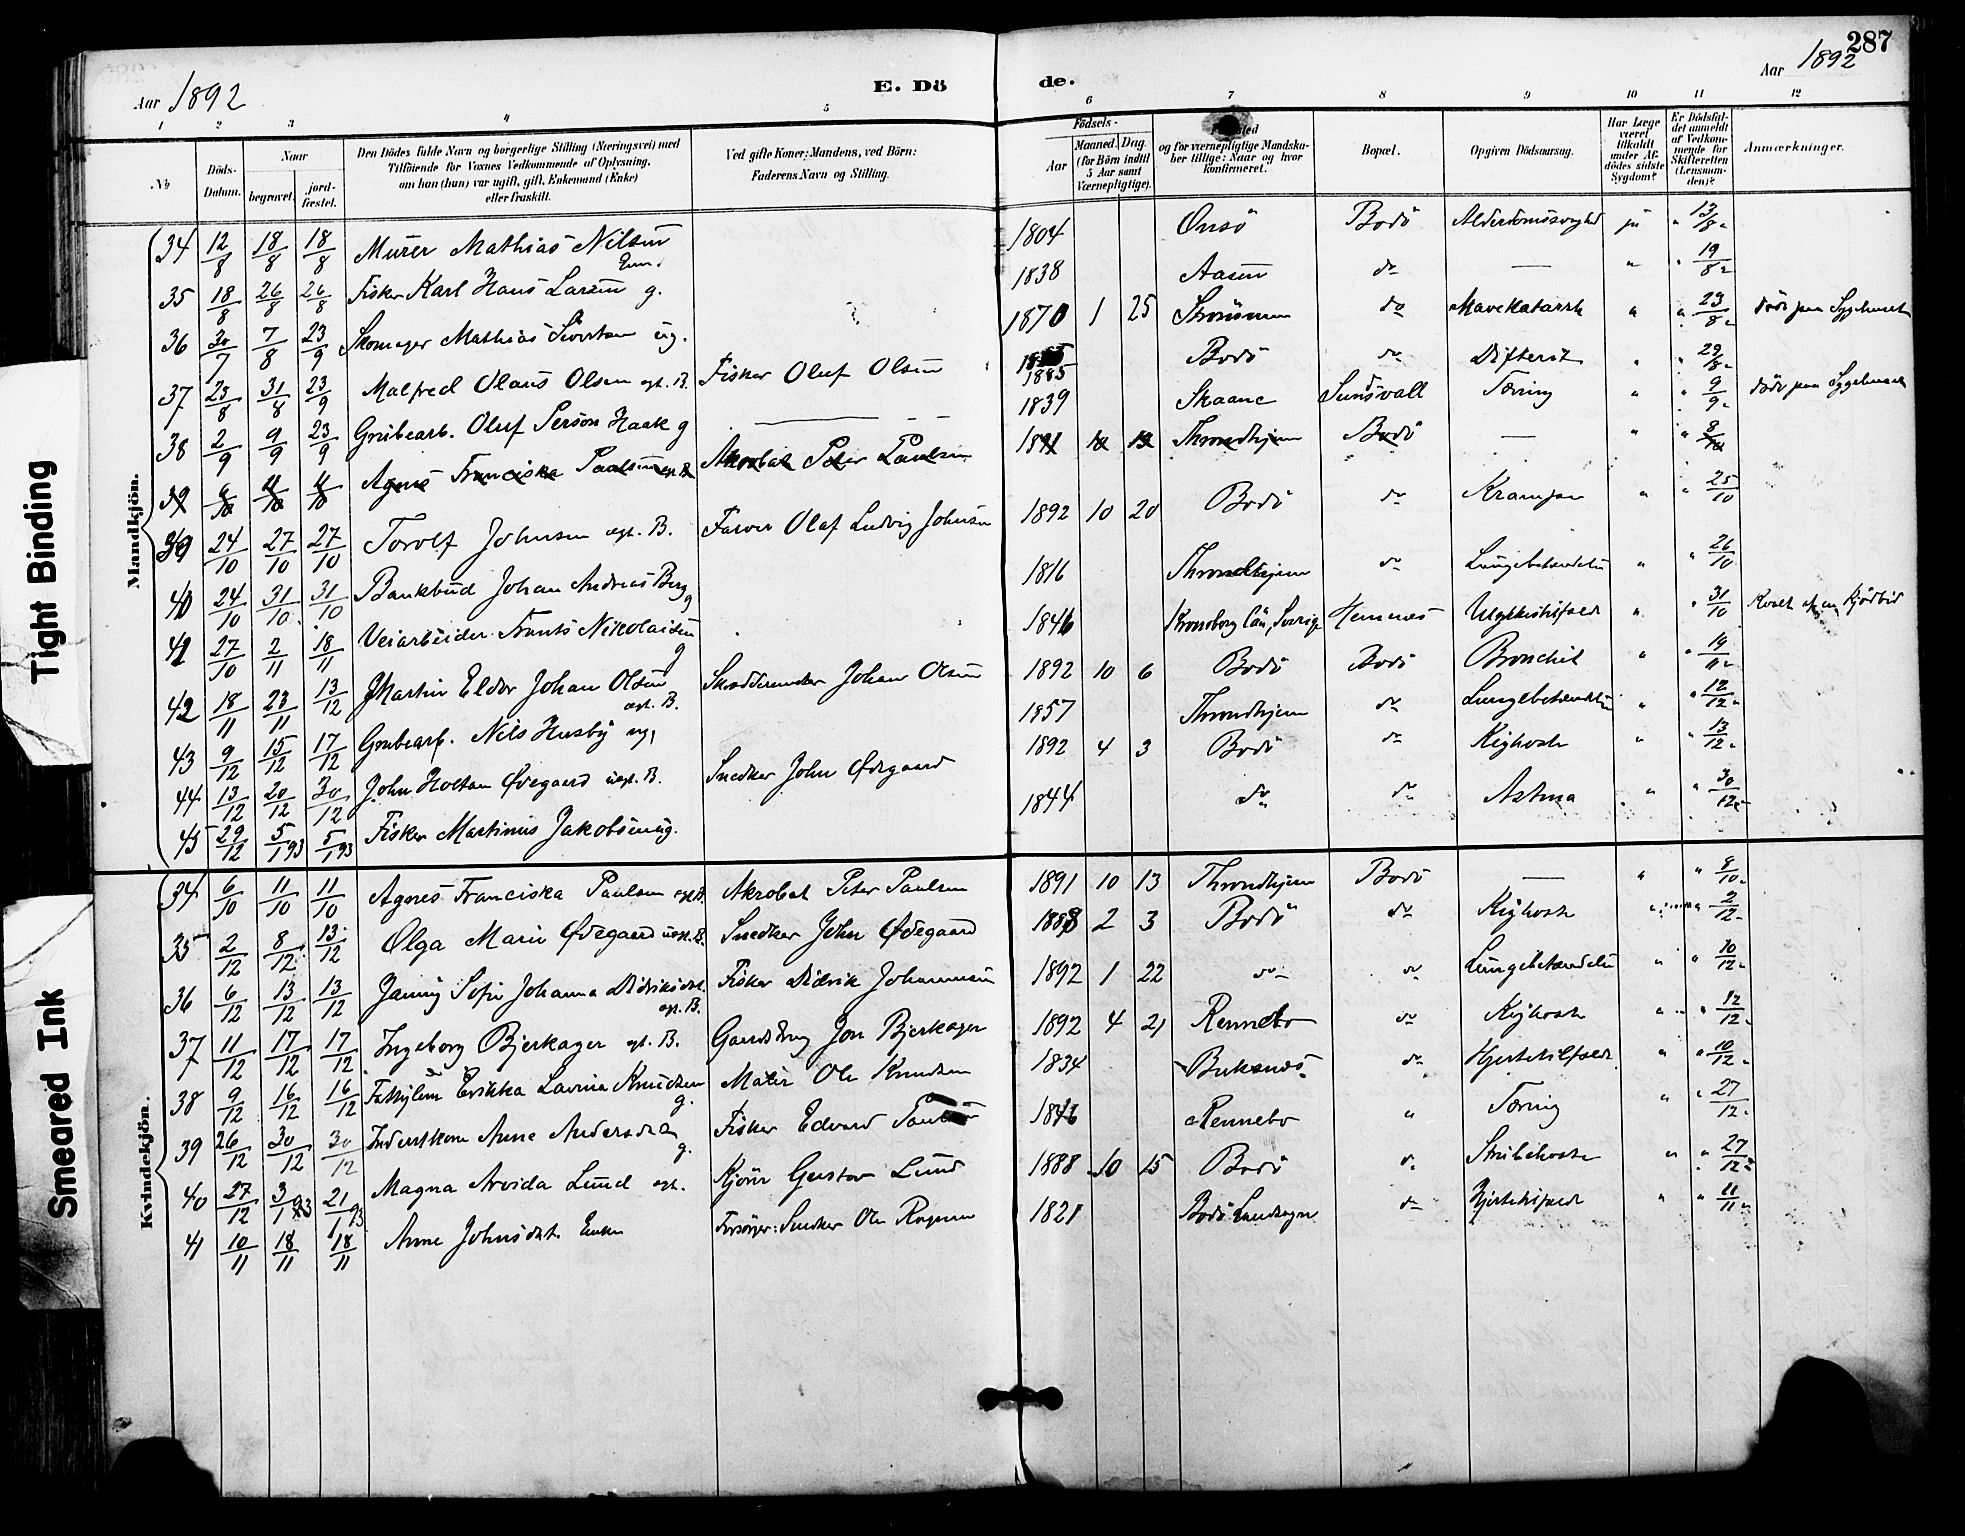 287
Aar 1892 E. Dö de. Aar 1892
1 2 3 4 5 6 7 8 9 10 11 12
No
Döds-Datum.
Naar
begravet.
jord-fæstet.
Den Dödes fulde Navn og borgerlige Stilling (Næringsvei) med
Tilföiende for Voxnes Vedkommende af Oplysning,
om han (hun) var ugift, gift, Enkemand (Enke)
eller fraskilt.
Ved gifte Koner: Mandens, ved Börn:
Faderens Navn og Stilling.
Födsels-
Aar
Maaned. Dag.
(for Börn indtil
5 Aar samt
Værnepligtige).
og for værnepligtige Mandska-
ber tillige: Naar og hvor
konfirmeret.
Bopæl.
Opgiven Dödsaarsag.
Har Læge
været
tilkaldt
under Af-
dödes sidste
Sygdom?
Er Dödsfal-
det anmeldt
af Vedkom-
mende for
Skifteretten
(Lensman-
den)?
Anmærkninger.
Mandkjön.
34 12/8 18/8 18/8 Murer Mathias Nilsen Enm. 1804 Onsö Bodö ja " 13/8
35 18/8 26/8 26/8 Fisker Karl Hans Larsen g. 1838 Aasen do — " " 19/8
36 30/7 7/8 23/9 Skomager Mathias Sivertsen ug. 1870 1 25 Strömmen do Mavekatarrh " " 23/8 död paa Sygehuset
37 23/8 31/8 23/9 Malfred Olaus Olsen egt. B. Fisker Oluf Olsen 1885 Bodö do Difterit " " 29/8
38 2/9 9/9 23/9 Grubearb. Oluf Person Haak g — 1839 Skaane Sundsvall Tæring " " 9/9 död paa Sygehuset
39 6/10 11/10 11/10 Agnes Franciska Paulsen egt. B. Akrobat Peter Paulsen 1891 10 13 Throndhjem Bodö — " " 8/10
39 24/10 27/10 27/10 Torolf Johnsen egt. B. Farver Olaf Ludvig Johnsen 1892 10 20 Bodö do Krampe " " 25/10
40 24/10 31/10 31/10 Bankbud Johan Andreas Berg g 1816 Throndhjem do Lungebetændelse " " 26/10
41 27/10 2/11 18/11 Veiarbeider Frants Nikolaisen g 1846 Kronoborg Län, Sverige Hemnes Ulykkestilfælde " " 31/10 Kvalt af en Kjödbid
42 18/11 23/11 13/12 Martin Eldor Johan Olsen egt. B. Johan Olsen 1892 10 6 Bodö Bodö Bronchit " " 19/11
43 9/12 15/12 17/12 Grubearb. Nils Husby ug. 1857 Throndhjem do Lungebetændelse " " 12/12
44 13/12 20/12 30/12 John Holtan Ødegaard uegt. B. Snedker John Ødegaard 1892 4 3 Bodö do Kighoste " " 13/12
45 29/12 5/1 93 5/1 93 Fisker Martinus Jakobsen ug. 1844 do do Astma " " 30/12
Kvindekjön.
34 6/10 11/10 11/10 Agnes Franciska Paulsen egt. B. Akrobat Peter Paulsen 1891 10 13 Throndhjem Bodö — " " 8/10
35 2/12 8/12 13/12 Olga Marie Ødegaard uegt. B. Snedker John Ødegaard 1888 2 3 Bodö do Kighoste " " 2/12
36 6/12 13/12 13/12 Janny Sofie Johanna Didriksdat. egt. B. Fisker Didrik Johannesen 1892 1 22 do do Lungebetændelse " " 10/12
37 11/12 17/12 17/12 Ingeborg Bjerkager egt. B. Jon Bjerkager 1892 4 21 Rennebo do Kighoste " " 12/12
38 9/12 16/12 16/12 Erikka Lavina Knudsen g. Ole Knudsen 1834 Buksnes do Hjertetilfælde " " 10/12
39 26/12 30/12 30/12 Anne Andersdat g. Fisker Edvard 1846 Rennebo " Tæring " " 27/12
40 27/12 3/1 93 21/1 93 Magna Arvida Lund egt. Kjörer Gustav Lund 1888 10 15 Bodö do Strubehoste " " 27/12
41 10/11 18/11 18/11 Anne Johnsdat. Enke Forsörger: Snedker Ole 1821 Bodö Landsogn do Hjertetilfælde " " 11/11
Tight Binding
Smeared Ink